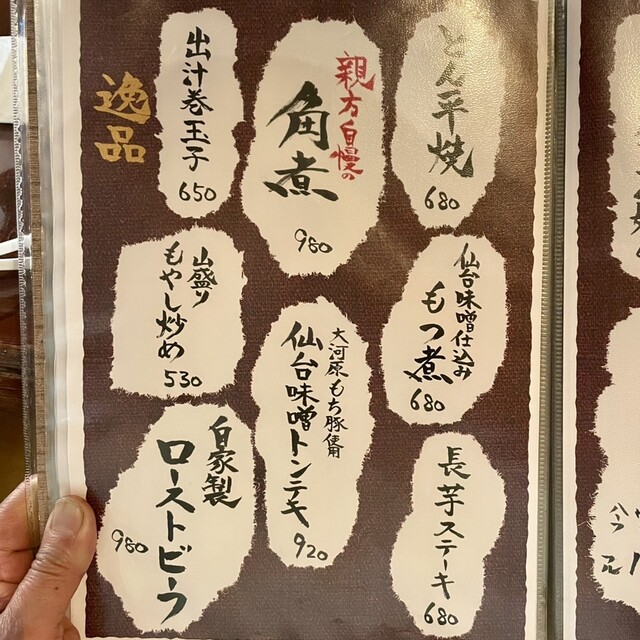 とん平焼
680
親方自慢の
角煮
980
出汁巻玉子
650
逸品
仙台味噌仕込み
もつ煮
680
大河原もち豚使用
仙台味噌トンテキ
920
山盛り
もやし炒め
530
長芋ステーキ
680
自家製
ローストビーフ
980